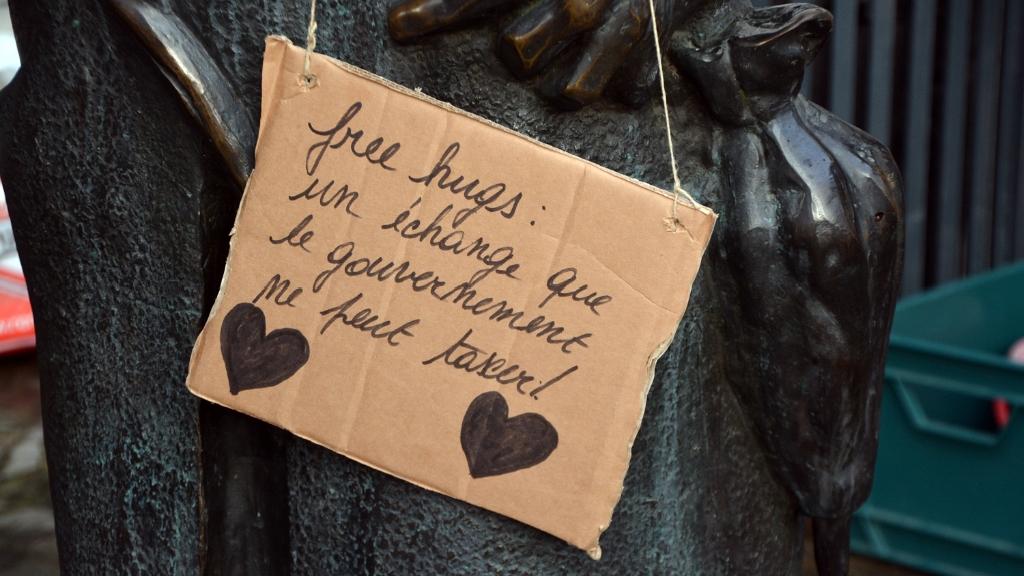 free hugs:
un échange que
le gouvernement
ne peut taxer!